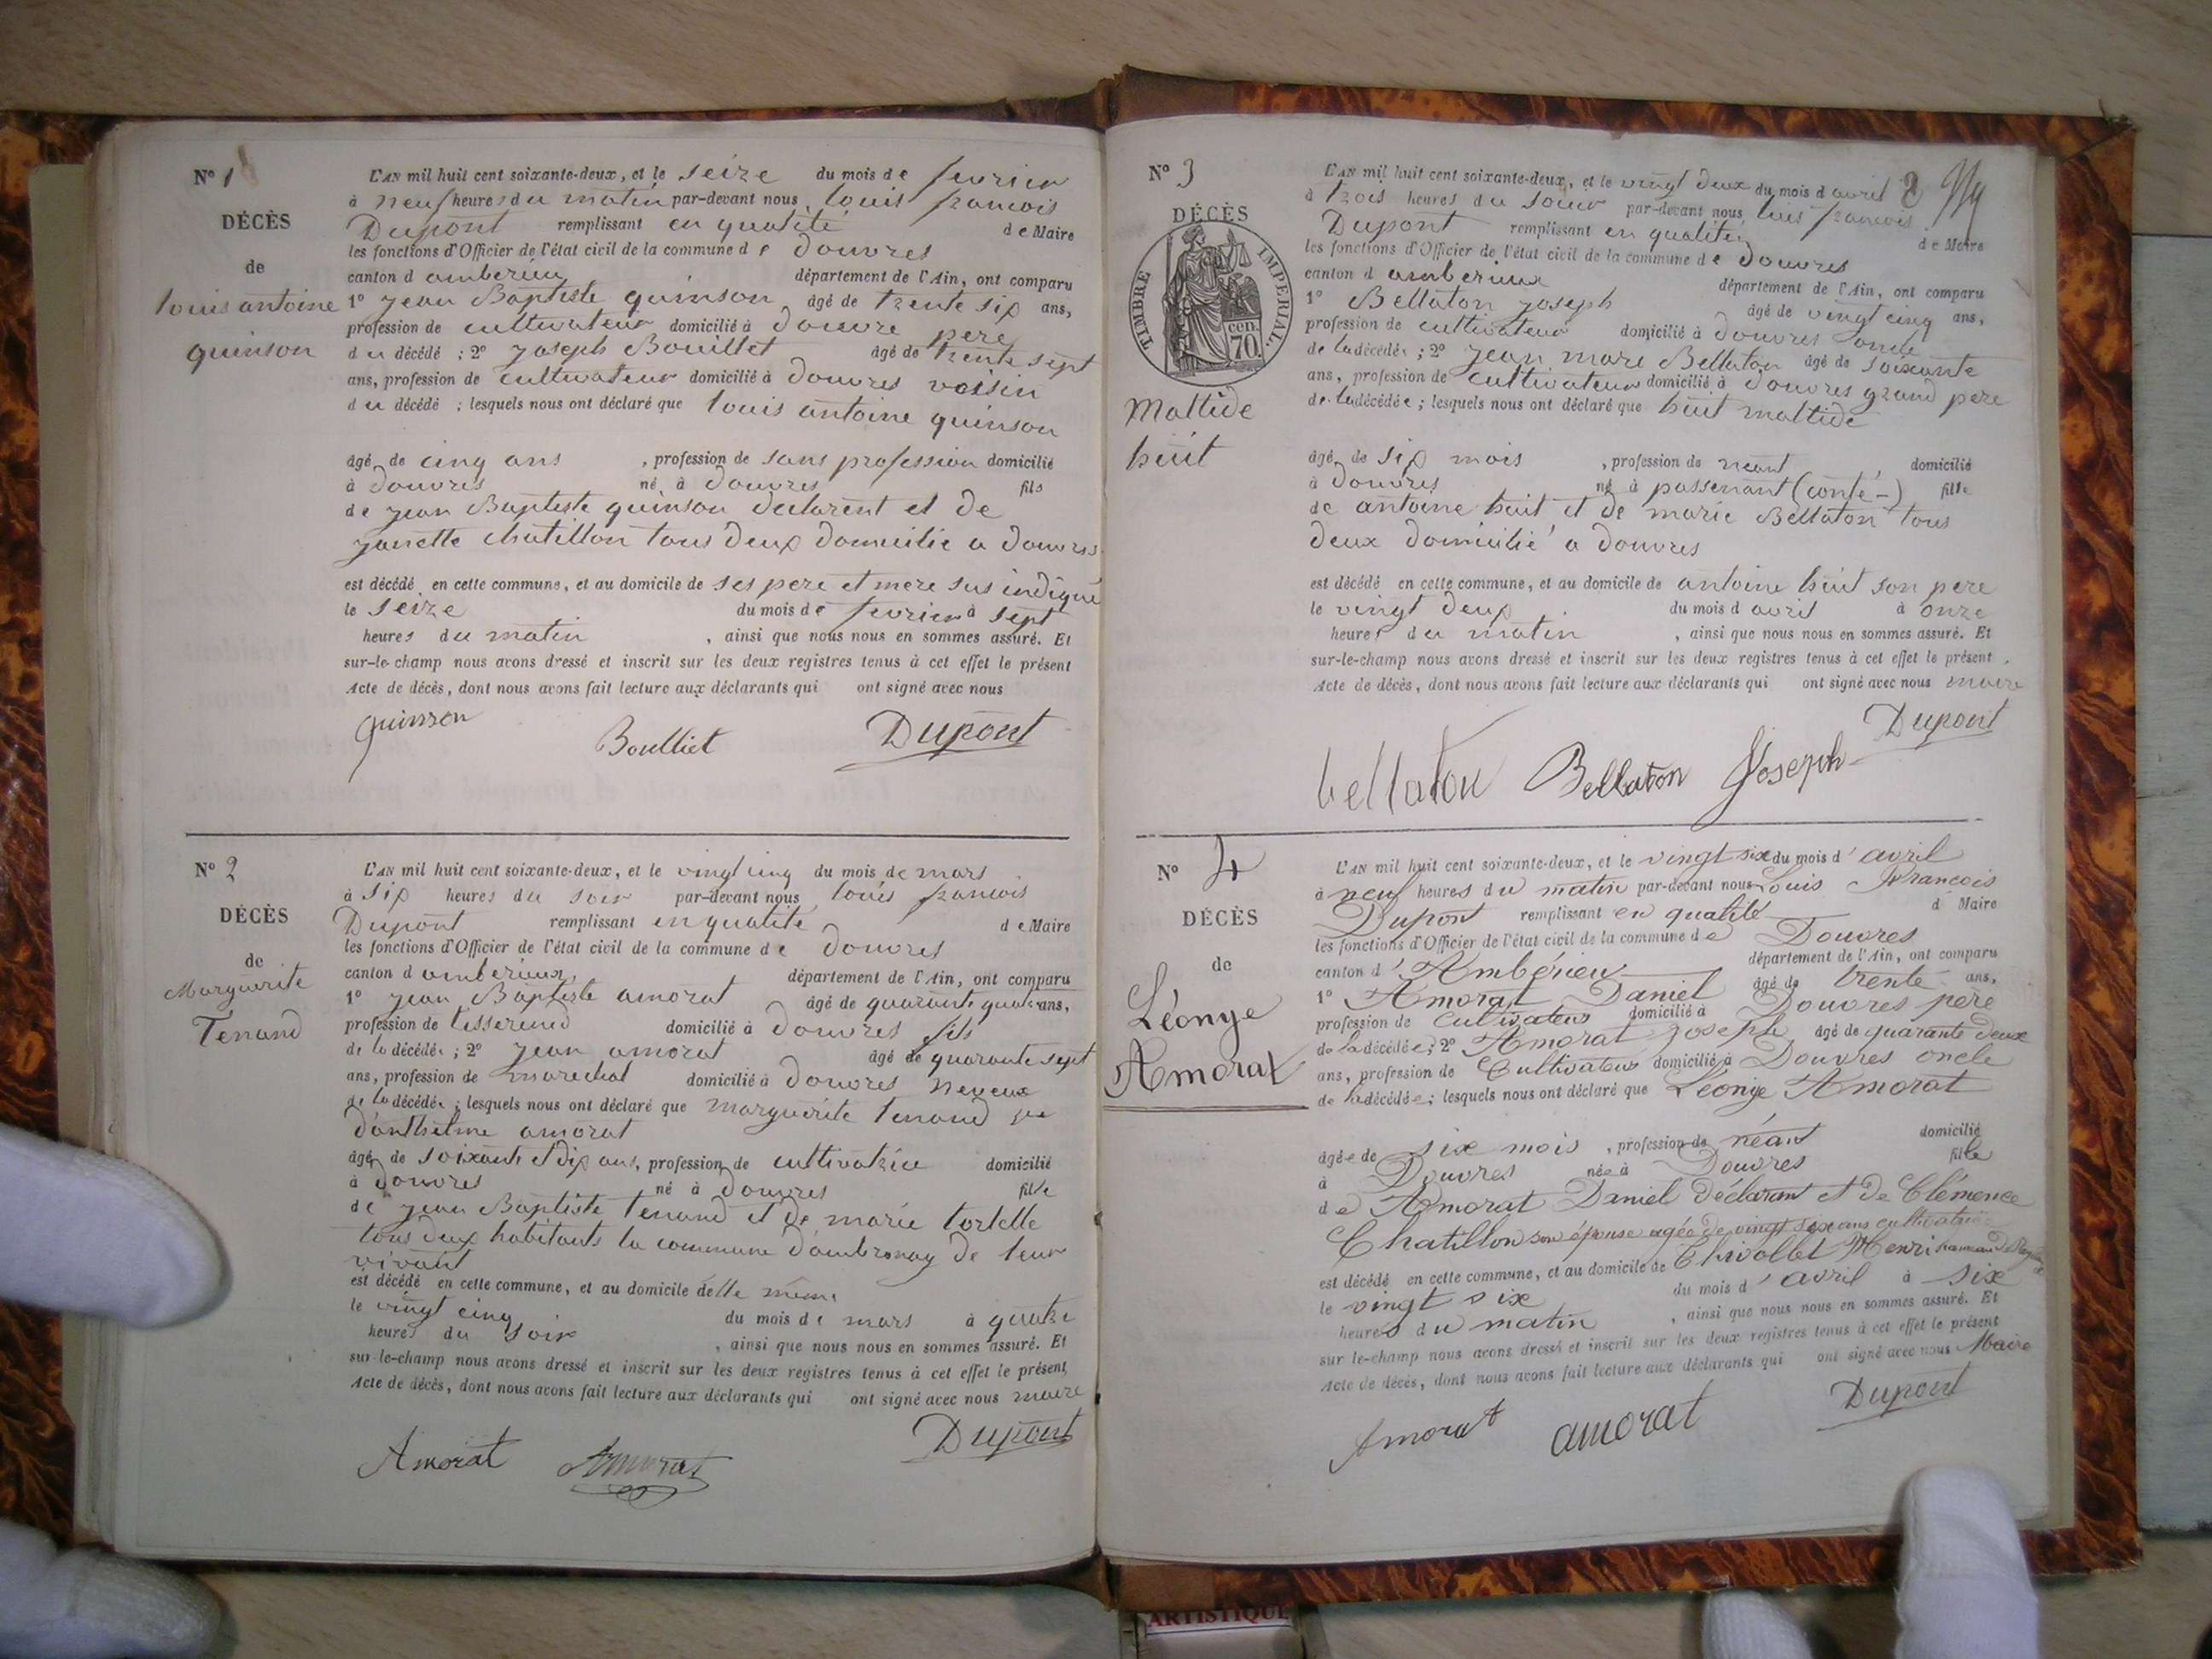 N° 1
DÉCÈS
de
louis antoine
quinson
L'AN mil huit cent soixante-deux, et le seize du mois de fevrier
à neuf heures du matin par-devant nous louis francois
Dupont remplissant en qualité de Maire
les fonctions d'Officier de l'état civil de la commune de douvres
canton d amberieu département de l'Ain, ont comparu
1° jean Baptiste quinson âgé de trente six ans,
profession de cultivateur domicilié à douvre pere
du décédé ; 2° joseph Bouillet âgé de trente sept
ans, profession de cultivateur domicilié à douvres voisin
du décédé ; lesquels nous ont déclaré que louis antoine quinson
âgé de cinq ans , profession de sans profession domicilié
à douvres né à douvres fils
de jean Baptiste quinson declarent et de
janette chatillon tous deux domicilie a douvres
est décédé en cette commune, et au domicile de ses pere et mere sus indiqué
le seize du mois de fevrier à sept
heures du matin , ainsi que nous nous en sommes assuré. Et
sur-le-champ nous avons dressé et inscrit sur les deux registres tenus à cet effet le présent
Acte de décès, dont nous avons fait lecture aux déclarants qui ont signé avec nous
quinson Boulliet Dupont
N° 2
DÉCÈS
de
Marguerite
Tenand
L'AN mil huit cent soixante-deux, et le vingt cinq du mois de mars
à six heures du soir par-devant nous louis francois
Dupont remplissant en qualité de Maire
les fonctions d'Officier de l'état civil de la commune de douvres
canton d amberieux département de l'Ain, ont comparu
1° jean Baptiste amorat âgé de quarante quatre ans,
profession de tisserend domicilié à douvres fils
de la décédée ; 2° jean amorat âgé de quarante sept
ans, profession de marechal domicilié à douvres neveux
de la décédée ; lesquels nous ont déclaré que marguerite tenand
d'anthelme amorat
âgé de soixante et dix ans, profession de cultivatrice domicilié
à douvres né à douvres fille
de jean Baptiste tenand et de marie tortelle
tous deux habitants la commune d'ambronay de leur
vivant
est décédé en cette commune, et au domicile delle meme
le vingt cinq du mois de mars à quatre
heures du soir , ainsi que nous nous en sommes assuré. Et
sur-le-champ nous avons dressé et inscrit sur les deux registres tenus à cet effet le présent
Acte de décès, dont nous avons fait lecture aux déclarants qui ont signé avec nous maire
Amorat Amorat Dupont
N° 3
DÉCÈS
TIMBRE IMPERIAL.
70 cen.
Maltide
huit
L'AN mil huit cent soixante-deux, et le vingt deux du mois d avril
à trois heures du soir par-devant nous louis francois
Dupont remplissant en qualité de Maire
les fonctions d'Officier de l'état civil de la commune de douvres
canton d amberieux département de l'Ain, ont comparu
1° Bellaton joseph âgé de vingt cinq ans,
profession de cultivateur domicilié à douvres oncle
de la décédée ; 2° jean marc Bellaton âgé de soixante
ans, profession de cultivateur domicilié à douvres grand pere
de la décédée ; lesquels nous ont déclaré que huit maltide
âgé de six mois , profession de néant domicilié
à douvres né à passenant (conté-) fille
de antoine huit et de marie Bellaton tous
deux domicilié a douvres
est décédé en cette commune, et au domicile de antoine huit son pere
le vingt deux du mois d avril à onze
heures du matin , ainsi que nous nous en sommes assuré. Et
sur-le-champ nous avons dressé et inscrit sur les deux registres tenus à cet effet le présent
Acte de décès, dont nous avons fait lecture aux déclarants qui ont signé avec nous maire
Dupont
bellaton Bellaton Joseph
N° 4
DÉCÈS
de
Léonye
Amorat
L'AN mil huit cent soixante-deux, et le vingt six du mois d' avril
à neuf heures du matin par-devant nous Louis François
Dupont remplissant en qualité d Maire
les fonctions d'Officier de l'état civil de la commune de Douvres
canton d' Ambérieu département de l'Ain, ont comparu
1° Amorat Daniel âgé de trente ans,
profession de Cultivateur domicilié à Douvres père
de la décédée ; 2° Amorat joseph âgé de quarante deux
ans, profession de Cultivateur domicilié à Douvres oncle
de la décédée ; lesquels nous ont déclaré que Léonye Amorat
âgée de six mois , profession de néant domicilié
à Douvres née à Douvres fille
de Amorat Daniel déclarant et de Clémence
Chatillon son épouse agée de vingt six ans cultivatrice
est décédé en cette commune, et au domicile de Chivollet Henri
le vingt six du mois d' avril à six
heures du matin , ainsi que nous nous en sommes assuré. Et
sur le-champ nous avons dressé et inscrit sur les deux registres tenus à cet effet le présent
Acte de décès, dont nous avons fait lecture aux déclarants qui ont signé avec nous Maire
Amorat amorat Dupont
ARTISTIQUE